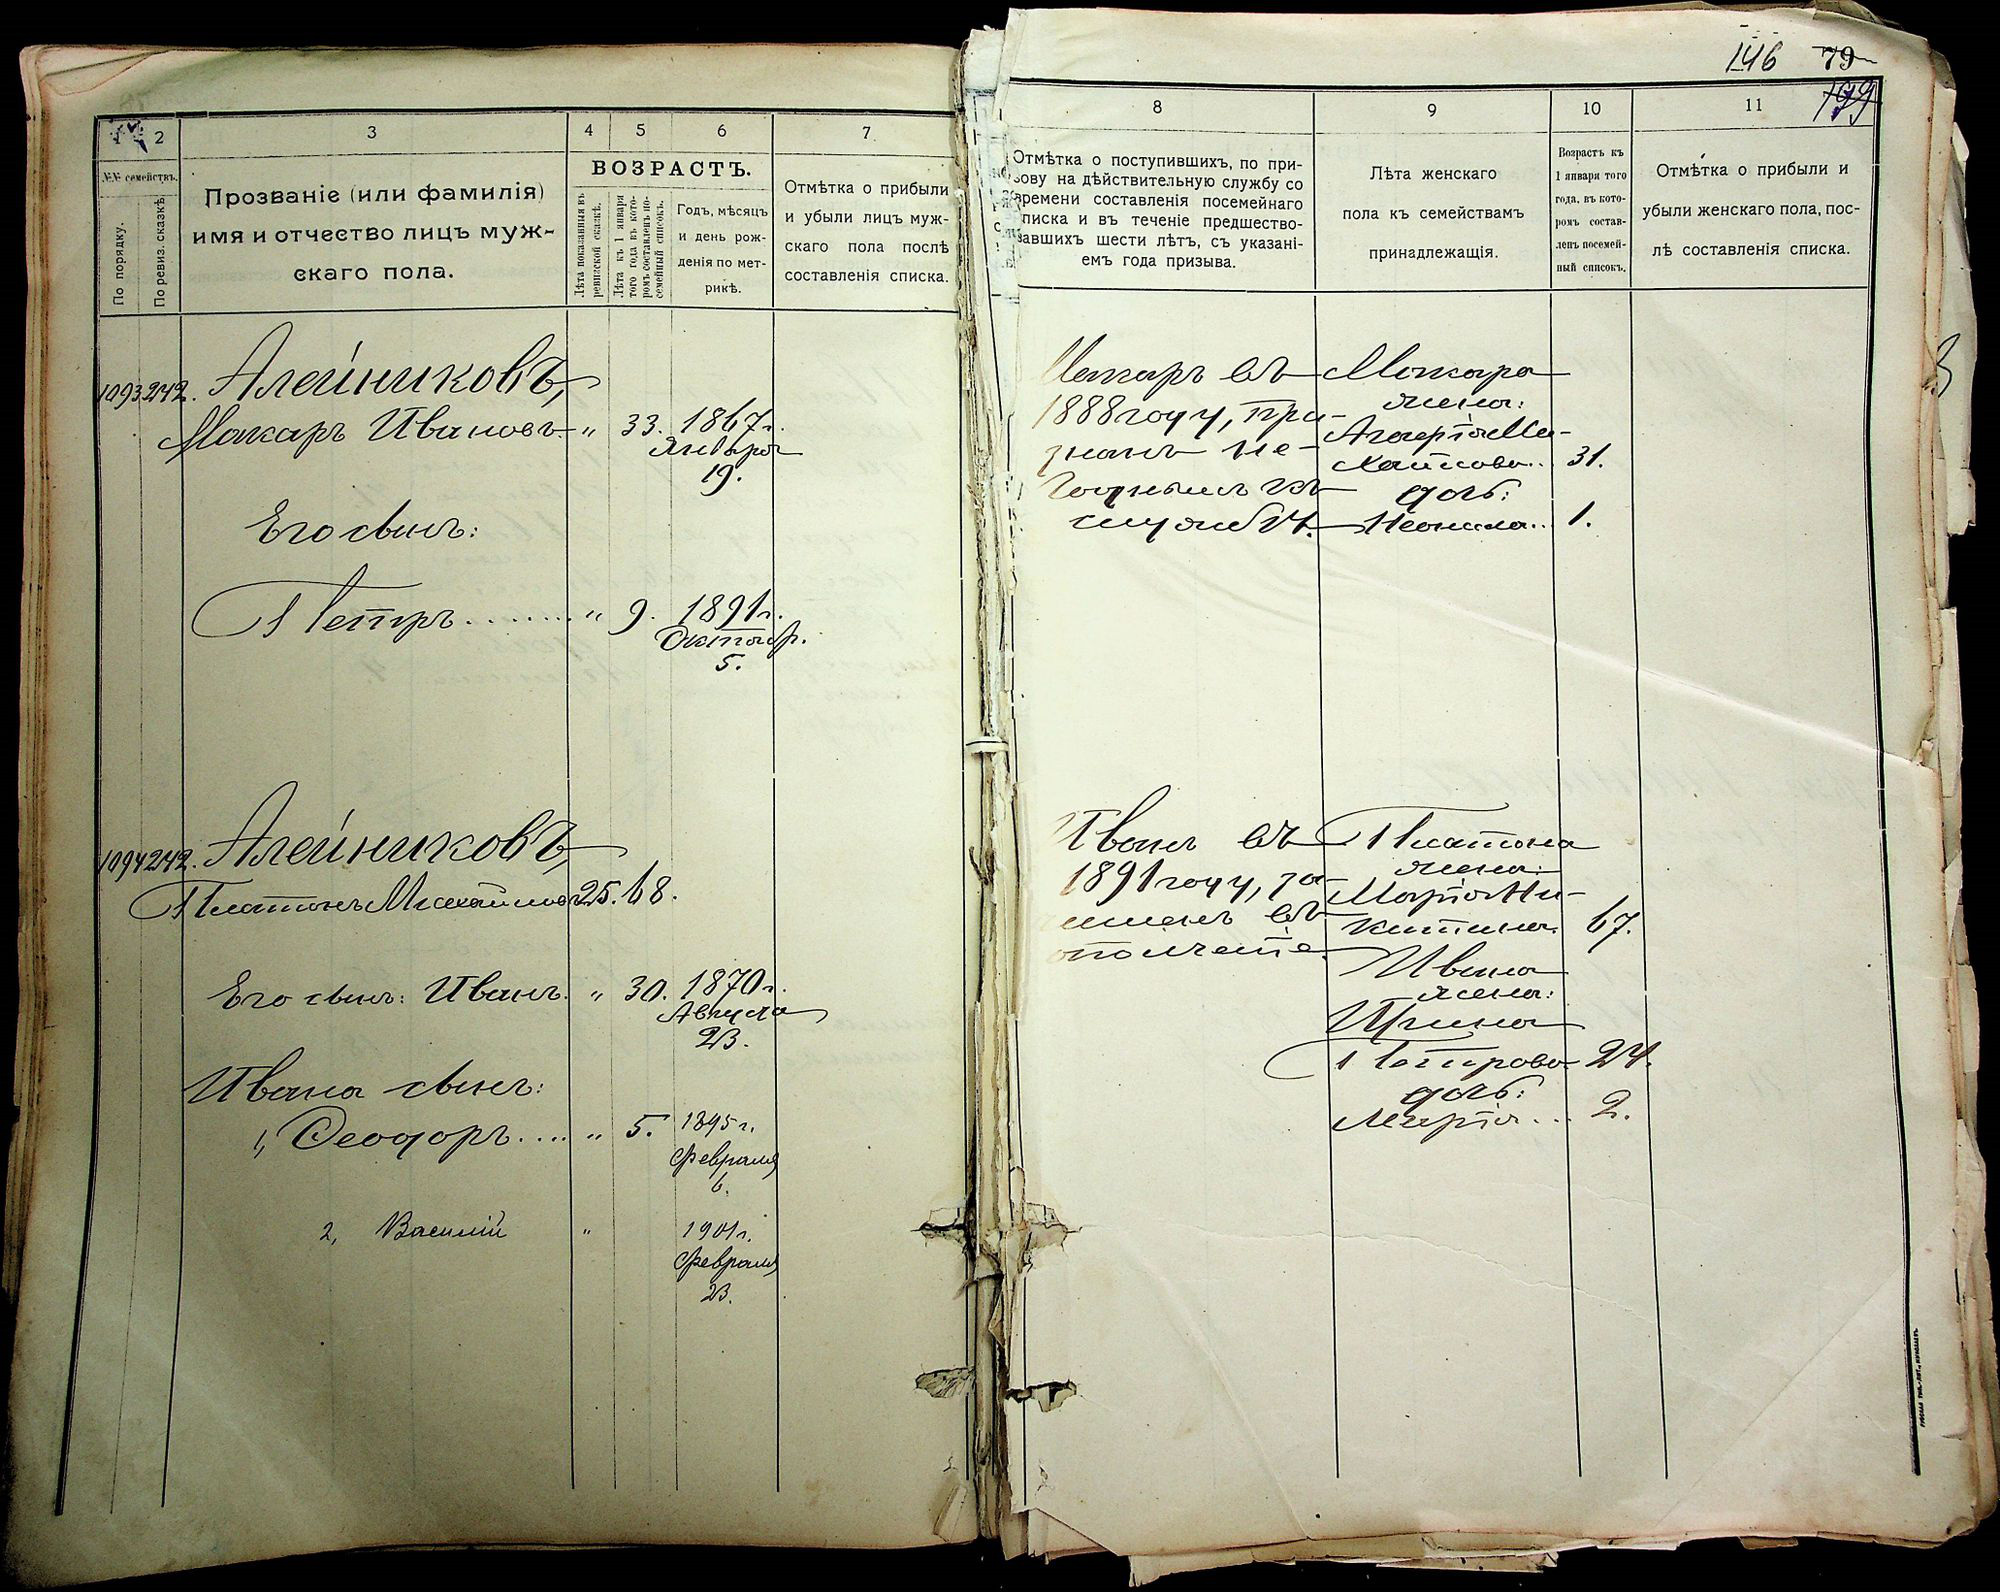 1 2
3
4
5
6
7
№№ семействъ.
По порядку.
По ревиз. сказкѣ.
Прозваніе (или фамилія)
имя и отчество лицъ муж-
скаго пола.
ВОЗРАСТЪ.
Лѣта показанныя въ
ревизской сказкѣ.
Лѣта къ 1 января
того года въ кото-
ромъ составленъ по-
семейный списокъ.
Годъ, мѣсяцъ
и день рож-
денія по мет-
рикѣ.
Отмѣтка о прибыли
и убыли лицъ муж-
скаго пола послѣ
составленія списка.
1093 242. Алейниковъ,
Макаръ Ивановъ. „ 33. 1867 г.
Января
19.
Его сынъ:
Петръ........ „ 9. 1891 г.
Октябр.
5.
1094 242. Алейниковъ,
Платонъ Михайловъ 25. 68.
Его сынъ: Иванъ. „ 30. 1870 г.
Августа
23.
Ивана сынъ:
1, Феодоръ.... „ 5. 1895 г.
Февраля
6.
2, Василій „ 1901 г.
Февраля
23.
146 79
199
8
9
10
11
Отмѣтка о поступившихъ, по при-
зову на дѣйствительную службу со
времени составленія посемейнаго
списка и въ теченіе предшество-
вавшихъ шести лѣтъ, съ указані-
емъ года призыва.
Лѣта женскаго
пола къ семействамъ
принадлежащія.
Возрастъ къ
1 января того
года, въ кото-
ромъ состав-
ленъ посемей-
ный списокъ.
Отмѣтка о прибыли и
убыли женскаго пола, пос-
лѣ составленія списка.
Макаръ въ
1888 году, при-
знанъ не-
годнымъ къ
службѣ.
Макара
жена:
Агафія Ми-
хайлова.. 31.
дочь:
Неонила.. 1.
Иванъ въ
1891 году, за-
численъ въ
ополченіе.
Платона
жена:
Марія Ни-
китина. 67.
Ивана
жена:
Ирина
Петрова 24.
дочь:
Марія... 2.